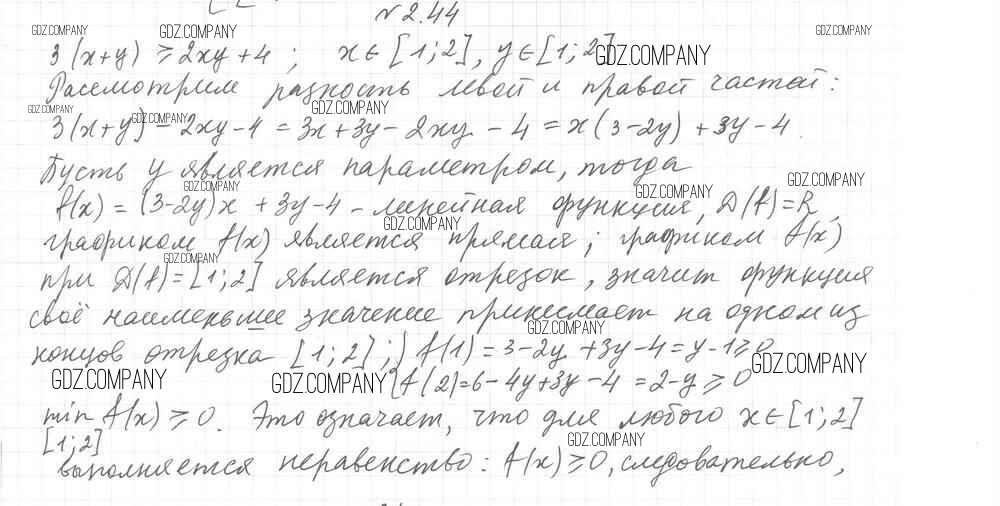 №2.44
GDZ.COMPANY GDZ.COMPANY GDZ.COMPANY
3(x+y) ≥ 2xy+4 ; x∈[1;2], y∈[1;2] GDZ.COMPANY
Рассмотрим разность левой и правой частей:
GDZ.COMPANY GDZ.COMPANY GDZ.COMPANY
3(x+y) - 2xy-4 = 3x+3y- 2xy - 4 = x(3-2y) + 3y-4.
Пусть y является параметром, тогда
GDZ.COMPANY GDZ.COMPANY GDZ.COMPANY
f(x) = (3-2y)x + 3y-4 - линейная функция, D(f)=R,
GDZ.COMPANY
графиком f(x) является прямая; графиком f(x)
GDZ.COMPANY
при D(f)=[1;2] является отрезок, значит функция
своё наименьшее значение принимает на одном из
GDZ.COMPANY
концов отрезка [1;2]; { f(1) = 3-2y +3y-4 = y-1≥0
GDZ.COMPANY GDZ.COMPANY { f(2)=6-4y+3y-4 = 2-y ≥ 0 GDZ.COMPANY
min f(x) ≥ 0. Это означает, что для любого x∈[1;2]
[1;2]
GDZ.COMPANY
выполняется неравенство: f(x)≥0, следовательно,